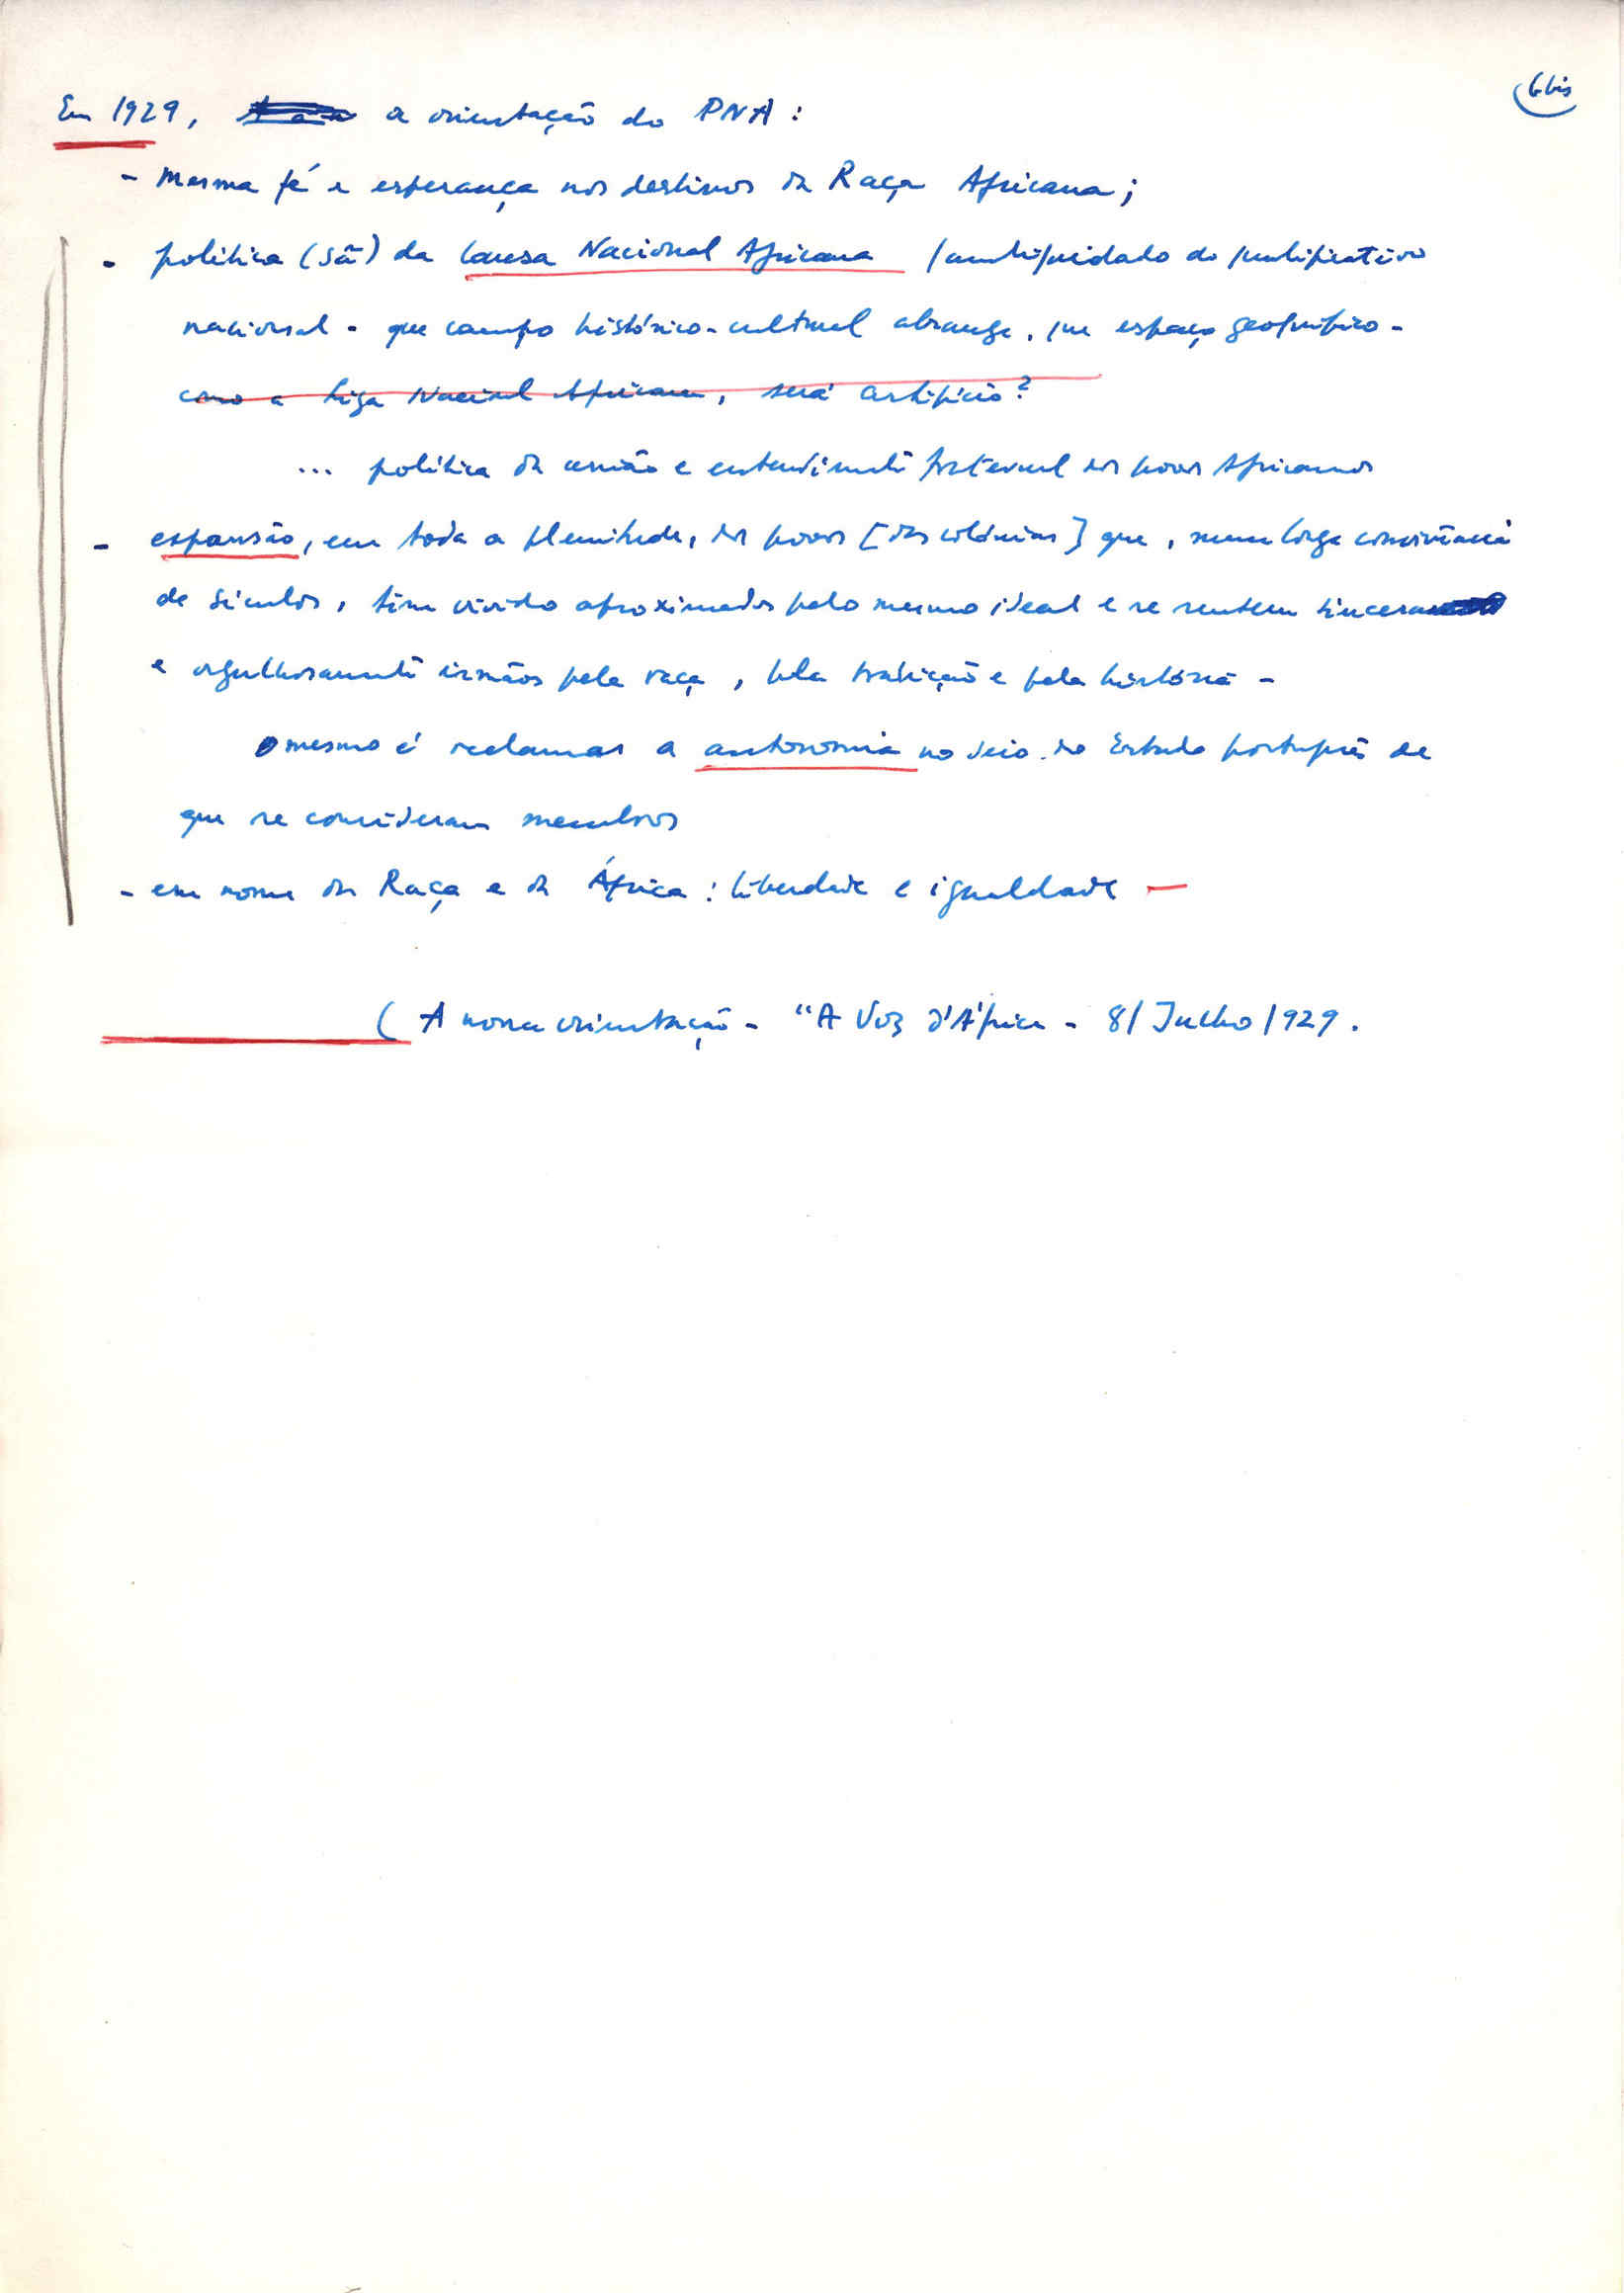 6 bis
Em 1929, a orientação do PNA:
- Mesma fé e esperança nos destinos da Raça Africana;
- política (sã) da Causa Nacional Africana / ambiguidade do qualificativo
nacional - que campo histórico-cultural abrange, que espaço geográfico -
como a Liga Nacional Africana, será artifício?
... política da união e entendimento fraternal dos povos Africanos
- expansão, em toda a plenitude, dos povos [das colónias] que, numa longa convivência
de séculos, têm vivido aproximados pelo mesmo ideal e se sentem sincera
e orgulhosamente irmãos pela raça, pela tradição e pela história -
O mesmo é reclamar a autonomia no seio do Estado português de
que se consideram membros
- em nome da Raça e da África: liberdade e igualdade -
( A nossa orientação - "A Voz d'África - 8/ Julho/1929.